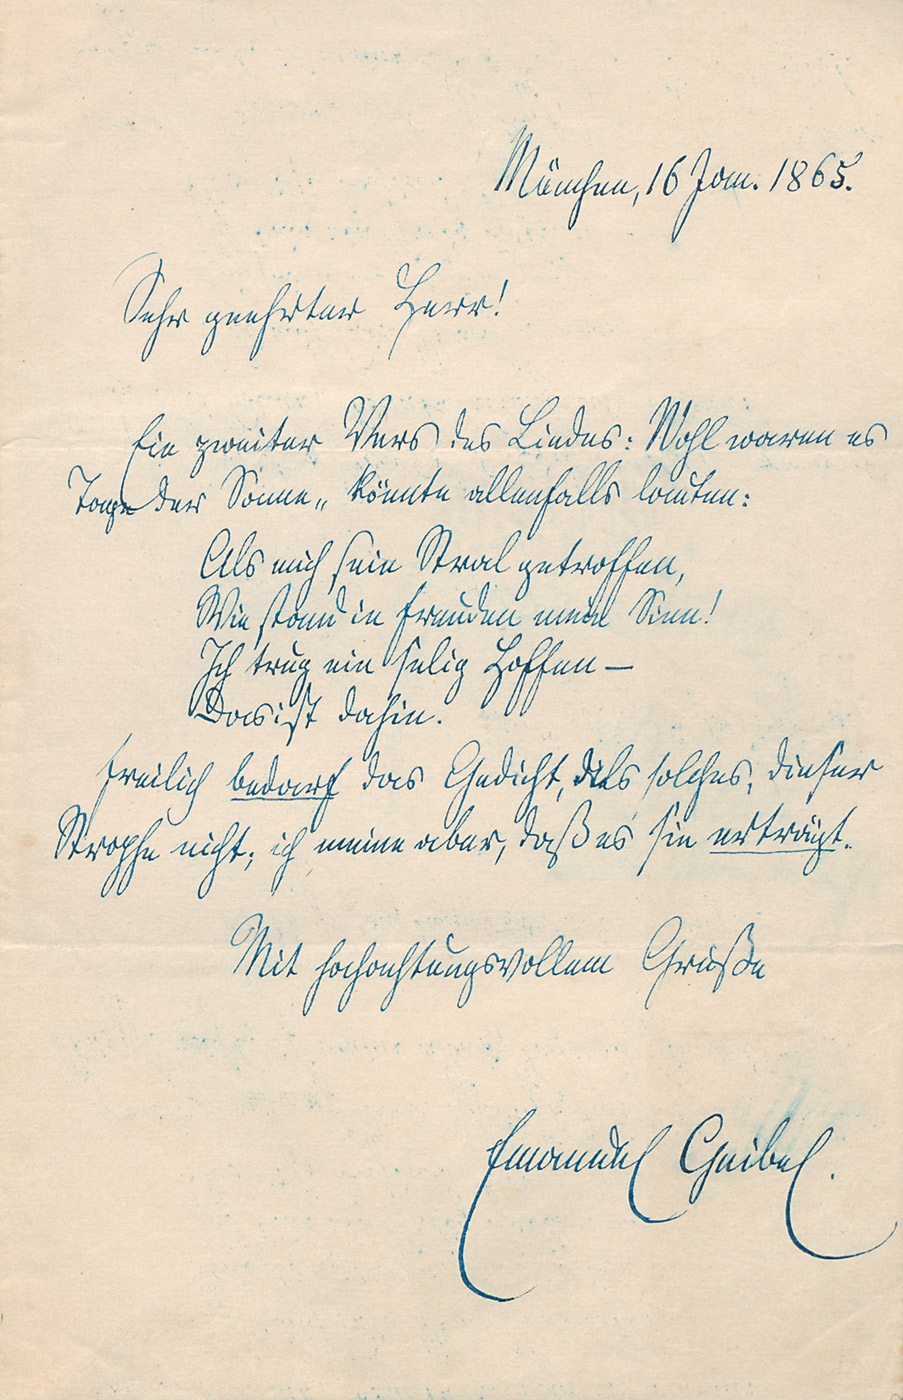 München, 16 Jan. 1865.
Sehr geehrter Herr!
Ein zweiter Vers des Liedes: Wohl waren es
Tage der Sonne„ könnte allenfalls lauten:
Als mich sein Stral getroffen,
Wie stand in Freuden mein Sinn!
Ich trug ein selig Hoffen —
Das ist dahin.
Freilich bedarf das Gedicht, als solches, dieser
Strophe nicht; ich meine aber, daß es sie erträgt.
Mit hochachtungsvollem Gruße
Emanuel Geibel.